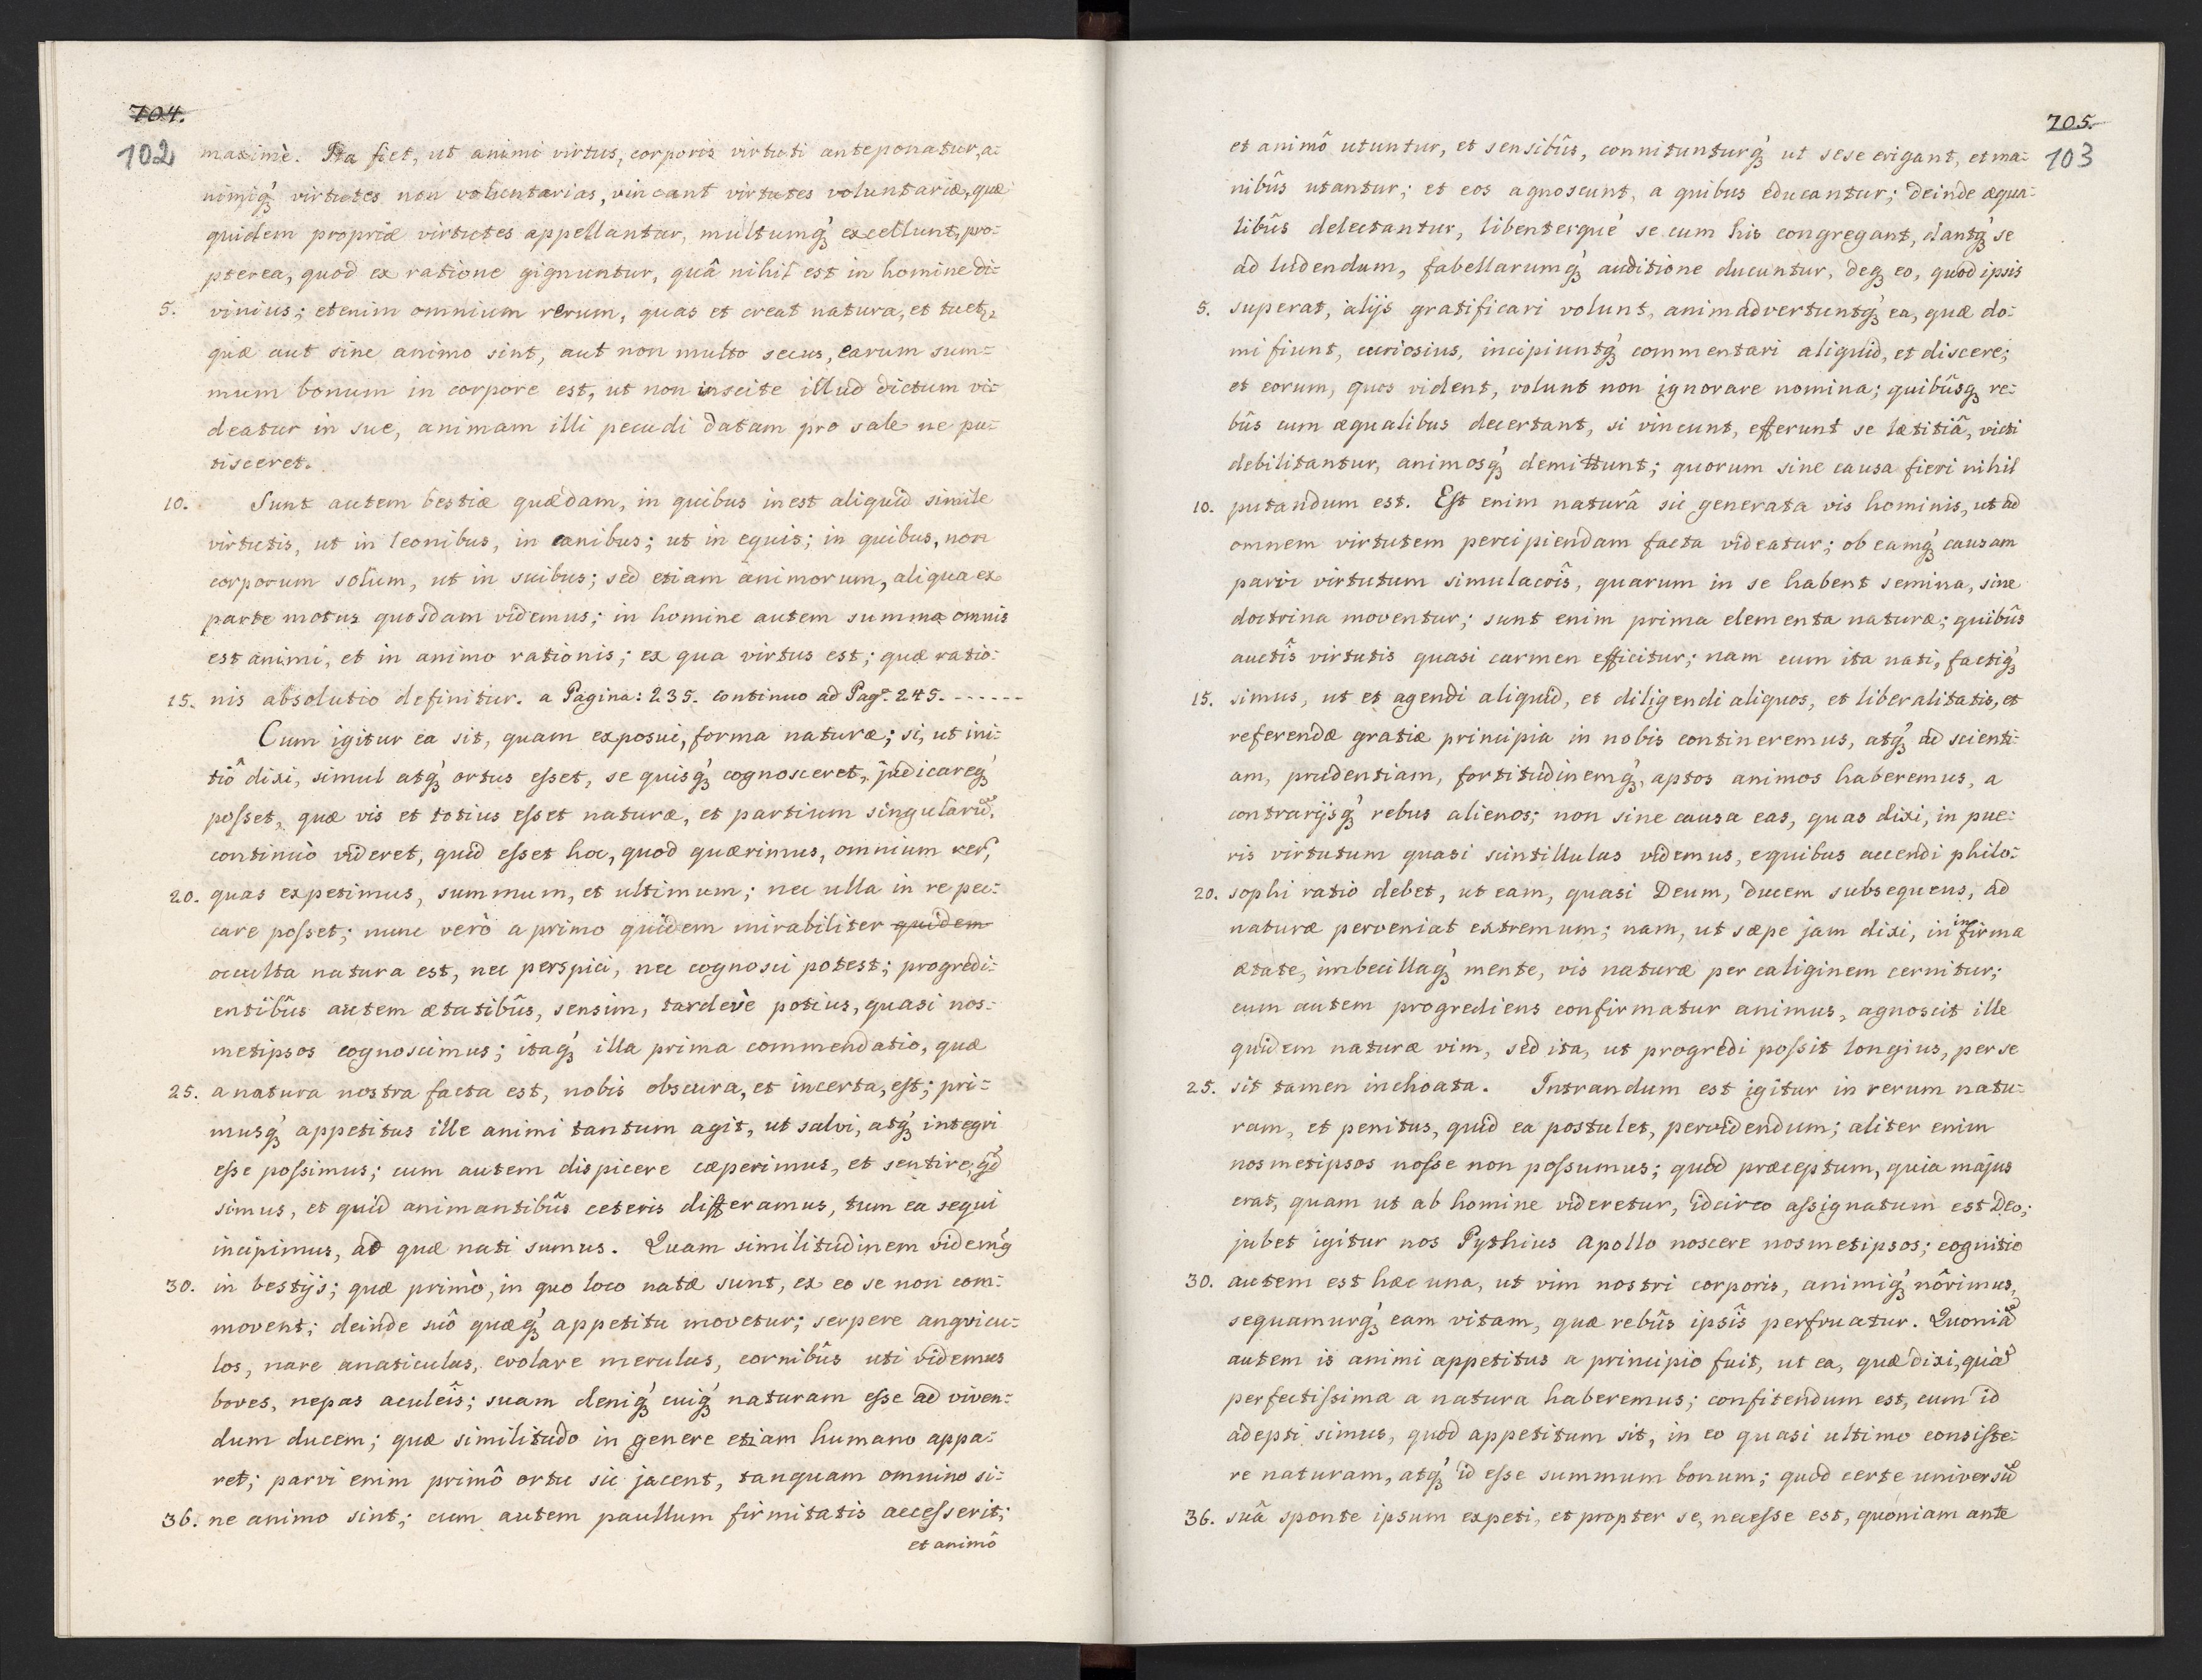 704.
102
maximè. Ita fiet, ut animi virtus, corporis virtuti anteponatur, a=
nimiq́ꝫ virtutes non voluntarias, vincant virtutes voluntariæ, quæ
quidem propriæ virtutes appellantur, multumq́ꝫ excellunt, pro=
pterea, quod ex ratione gignuntur, quâ nihil est in homine di=
5. vinius; etenim omnium rerum, quas et creat natura, et tuetr
quæ aut sine animo sint, aut non multo secus, earum sum=
mum bonum in corpore est, ut non inscite illud dictum vi=
deatur in sue, animam illi pecudi datam pro sale ne pu=
tisceret.
10. Sunt autem bestiæ quædam, in quibus inest aliquid simile
virtutis, ut in leonibus, in canibus; ut in equis; in quibus, non
corporum solum, ut in suibus; sed etiam animorum, aliqua ex
parte motus quosdam videmus; in homine autem summa omnis
est animi, et in animo rationis; ex qua virtus est; quæ ratio=
15. nis absolutio definitur. a Pagina: 235. continuo ad Pagᵃ 245. - - - - - -
Cum igitur ea sit, quam exposui, forma naturæ; si, ut ini=
tiô dixi, simul atq́ꝫ ortus eſset, se quisq́ꝫ cognosceret, judicareq́ꝫ
poſset, quæ vis et totius eſset naturæ, et partium singularũ,
continuò videret, quid eſset hoc, quod quærimus, omnium rer̃,
20. quas expetimus, summum, et ultimum; nec ulla in re pec=
care poſset; nunc verò a primo quidem mirabiliter quidem
occulta natura est, nec perspici, nec cognosci potest; progredi=
entibûs autem ætatibûs, sensim, tardevè potius, quasi nos=
metipsos cognoscimus; itaq́ꝫ illa prima commendatio, quæ
25. a natura nostra facta est, nobis obscura, et incerta, eſt; pri=
musq́ꝫ appetitus ille animi tantum agit, ut salvi, atq́ꝫ integri
eſse poſsimus; cum autem dispicere cæperimus, et sentire, qd
simus, et quid animantibûs ceteris differamus, tum ea sequi
incipimus, ad quæ nati sumus. Quam similitudinem videmꝰ
30. in bestijs; quæ primò, in quo loco natæ sunt, ex eo se non com=
movent; deinde suô quæq́ꝫ appetitu movetur; serpere angvicu=
los, nare anaticulas, evolare merulas, cornibûs uti videmus
boves, nepas aculeîs; suam deniq́ꝫ cuiq́ꝫ naturam eſse ad viven=
dum ducem; quæ similitudo in genere etiam humano appa=
ret; parvi enim primô ortu sic jacent, tanquam omnino si=
36. ne animo sint; cum autem paullum firmitatis acceſserit;
et animô
705.
103
et animô utuntur, et sensibûs, connitunturq́ꝫ ut sese erigant, et ma=
nibûs utantur; et eos agnoscunt, a quibus educantur; deinde æqua=
libûs delectantur, libenterqué se cum his congregant, dantq́ꝫ se
ad ludendum, fabellarumq́ꝫ auditione ducuntur, deqꝫ eo, quod ipsis
5. superat, alijs gratificari volunt, animadvertuntq́ꝫ ea, quæ do=
mi fiunt, curiosius, incipiuntq́ꝫ commentari aliquid, et discere;
et eorum, quos vident, volunt non ignorare nomina; quibûsqꝫ re=
bûs cum æqualibus decertant, si vincunt, efferunt se lætitiâ, victi
debilitantur, animosq́ꝫ demittunt; quorum sine causa fieri nihil
10. putandum est. Eſt enim naturâ sic generata vis hominis, ut ad
omnem virtutem percipiendam facta videatur; ob eamq́ꝫ causam
parvi virtutum simulacrîs, quarum in se habent semina, sine
doctrina moventur; sunt enim prima elementa naturæ; quibûs
auctîs virtutis quasi carmen efficitur; nam cum ita nati, factiq́ꝫ
15. simus, ut et agendi aliquid, et diligendi aliquos, et liberalitatis, et
referendæ gratiæ principia in nobis contineremus, atq́ꝫ ad scienti=
am, prudentiam, fortitudinemq́ꝫ, aptos animos haberemus, a
contrarijsq́ꝫ rebus alienos; non sine causa eas, quas dixi, in pue=
ris virtutum quasi scintillulas videmus, equibus accendi philo=
20. sophi ratio debet, ut eam, quasi Deum, ducem subsequens, ad
naturæ perveniat extremum; nam, ut sæpe jam dixi, in infirma
ætate, imbecillaq́ꝫ mente, vis naturæ per caliginem cernitur;
cum autem progrediens confirmatur animus, agnoscit ille
quidem naturæ vim, sed ita, ut progredi poſsit longius, per se
25. sit tamen inchoata. Intrandum est igitur in rerum natu=
ram, et penitus, quid ea postulet, pervidendum; aliter enim
nosmetipsos noſse non poſsumus; quod præceptum, quia majus
erat, quam ut ab homine videretur, idcirco aſsignatum est Deo;
jubet igitur nos Pythius Apollo noscere nosmetipsos; cognitio
30. autem est hæc una, ut vim nostri corporis, animiq́ꝫ nôrimus,
sequamurq́ꝫ eam vitam, quæ rebûs ipsîs perfruatur. Quoniã
autem is animi appetitus a principio fuit, ut ea, quæ dixi, quã
perfectiſsima a natura haberemus; confitendum est, cum id
adepti simus, quod appetitum sit, in eo quasi ultimo consiſte=
re naturam, atq́ꝫ id eſse summum bonum; quod certe universũ
36. suâ sponte ipsum expeti, et propter se, neceſse est, quoniam ante